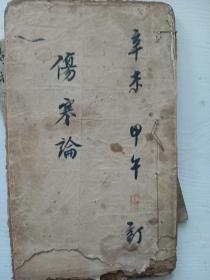 辛未 甲午 訂
傷寒論